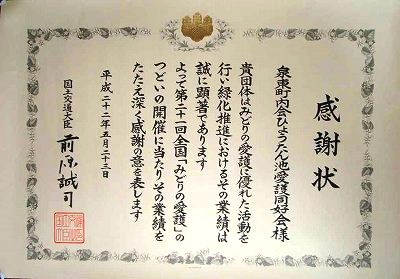 感謝状
泉東町内会ひょうたん池愛護同好会様
貴団体はみどりの愛護に優れた活動を
行い緑化推進におけるその業績は
誠に顕著であります
よって第二十一回全国「みどりの愛護」の
つどいの開催に当たりその業績を
たたえ深く感謝の意を表します
平成二十二年五月二十三日
国土交通大臣 前原誠司